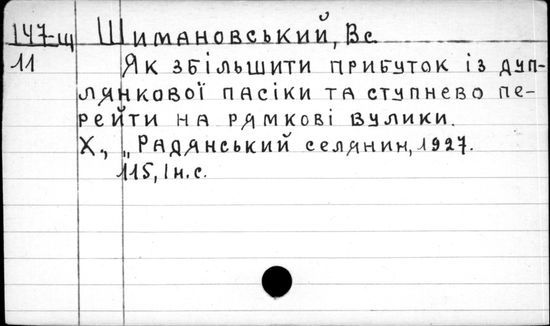 147-щ Шимановський, Вс
11 Як збільшити прибуток із дуп-
лянкової пасіки та ступнево пе-
рейти на рямкові вулики.
Х., „Радянський селянин, 1927.
115, 1 н. с.